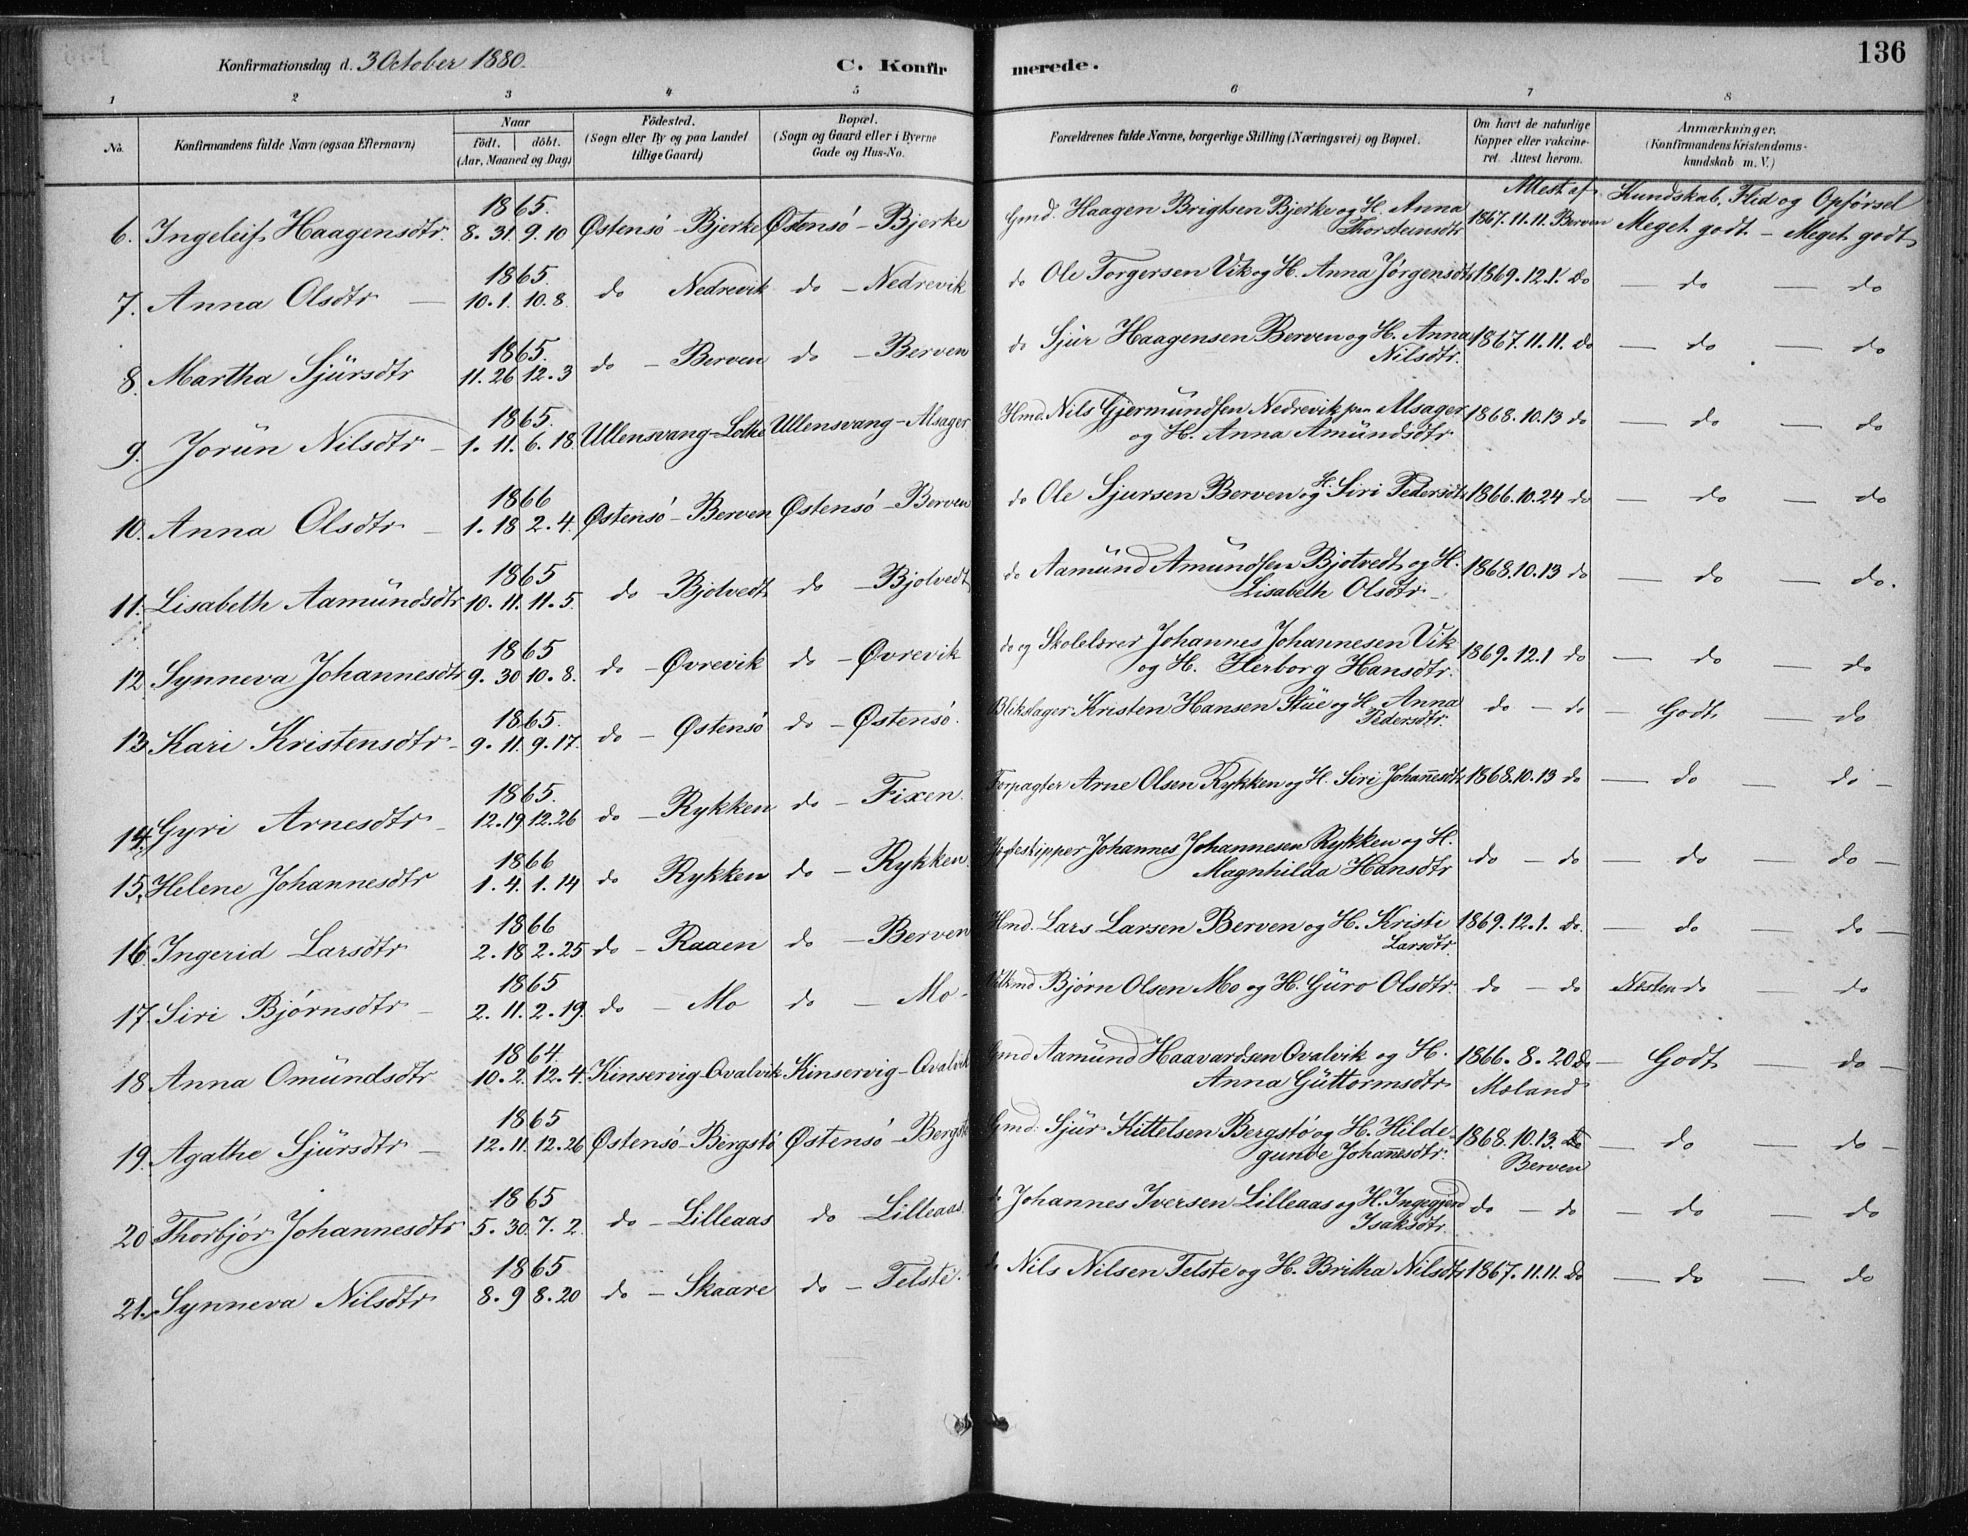 136
Konfirmationsdag d. 3 October 1880. C. Konfirmerede.
1 2 3 4 5 6 7 8
No. Konfirmandens fulde Navn (ogsaa Efternavn) Naar födt. döbt. (Aar, Maaned og Dag) Födested. (Sogn eller By og paa Landet tillige Gaard) Bopæl. (Sogn og Gaard eller i Byerne Gade og Hus-No. Forældrenes fulde Navne, borgerlige Stilling (Næringsvei) og Bopæl. Om havt de naturlige Kopper eller vakcineret. Attest herom. Anmærkninger. (Konfirmandens Kristendomskundskab m. V.)
Attest af Kundskab, Flid og Opførsel
6. Ingeleif Haagensdtr. 1865. 8. 31. 9. 10 Østensö - Bjerke Østensö - Bjerke Gmd. Haagen Brigtsen Bjerke og H. Anna Thorsteinsdtr 1867. 11. 11. Berven Meget godt - Meget godt
7. Anna Olsdtr 1865. 10. 1. 10. 8. do Nedrevik do - Nedrevik do Ole Torgersen Vik og H. Anna Jørgensdtr 1869. 12. 1. do - do - do
8. Martha Sjürsdtr 1865. 11. 26 12. 3 do - Berven do - Berven do Sjür Haagensen Berven og H. Anna Nilsdtr. 1867. 11. 11. do - do - do
9. Jorün Nilsdtr - 1865. 1. 11. 6. 18. Ullensvang - Lothe Ullensvang - Alsager Hmd. Nils Gjermündsen Nedrevik paa Alsager og H. Anna Amündsdtr. 1868. 10. 13 do - do - do
10. Anna Olsdtr - 1866 1. 18 2. 4. Østensö - Berven Østensö - Berven do Ole Sjursen Berven og H. Siri Pedersdtr 1866. 10. 24 do - do - do
11. Lisabeth Aamündsdtr 1865 10. 11. 11. 5. do Bjotvedt do - Bjotvedt do Aamünd Amündsen Bjotvedt og H. Lisabeth Olsdtr - 1868. 10. 13 do do - do.
12. Synneva Johannesdtr 1865 9. 30 10. 8. do - Øvrevik do - Øvrevik do og Skolelærer Johannes Johannesen Vik og H. Herborg Hansdtr. 1869. 12. 1 do - do - do
13. Kari Kristensdtr - 1865. 9. 11. 9. 17. do - Østensö do - Østensö. Blikslager Kristen Hansen Stüe og H. Anna Pedersdtr. do - do - Godt - do
14. Gyri Arnesdtr - 1865. 12. 19 12. 26 do - Rykken do - Fixen. Forpagter Arne Olsen Rykken og H. Siri Johannesdtr 1868. 10. 13 do - do - do -
15. Helene Johannesdtr 1866 1. 4. 1. 14 do Rykken do - Rykken. Jægteskipper Johannes Johannesen Rykken og H. Magnhilda Hansdtr do - do do - do -
16. Ingerid Larsdtr 1866 2. 18 2. 25 do - Raaen do - Berven Hmd. Lars Larsen Berven og H. Kristi Larsdtr. 1869. 12. 1. do. - do - do -
17. Siri Bjørnsdtr - 1865 2. 11. 2. 19. do - Mo do - Mo - Bjørn Olsen Mo og H. Güro Olsdtr. do - do Næsten do - do
18. Anna Omündsdtr 1864. 10. 2. 12. 4. Kinservig - Qvalvik Kinservig - Qvalvik Gmd Aamünd Haavardsen Qvalvik og H. Anna Güttormsdtr 1866. 8. 20 do Moland - Godt - do -
19. Agathe Sjürsdtr - 1865 12. 11. 12. 26 Østensö - Bergstö Østensö - Bergstö Gmd. Sjür Kittelsen Bergstö og H. Hildegunde Johannesdtr. 1868. 10. 13. do Berven - do - do -
20. Thorbjör Johannesdtr 1865 5. 30. 7. 2. do - Lilleaas do Lilleaas. do Johannes Iversen Lilleaas og H. Ingegjerd Isaksdtr. do - do - do - do
21. Synneva Nilsdtr 1865 8. 9 8. 20 do - Skaare do - Telste. do Nils Nilsen Telste og H. Britha Nilsdtr 1867. 11. 11. do - do - do